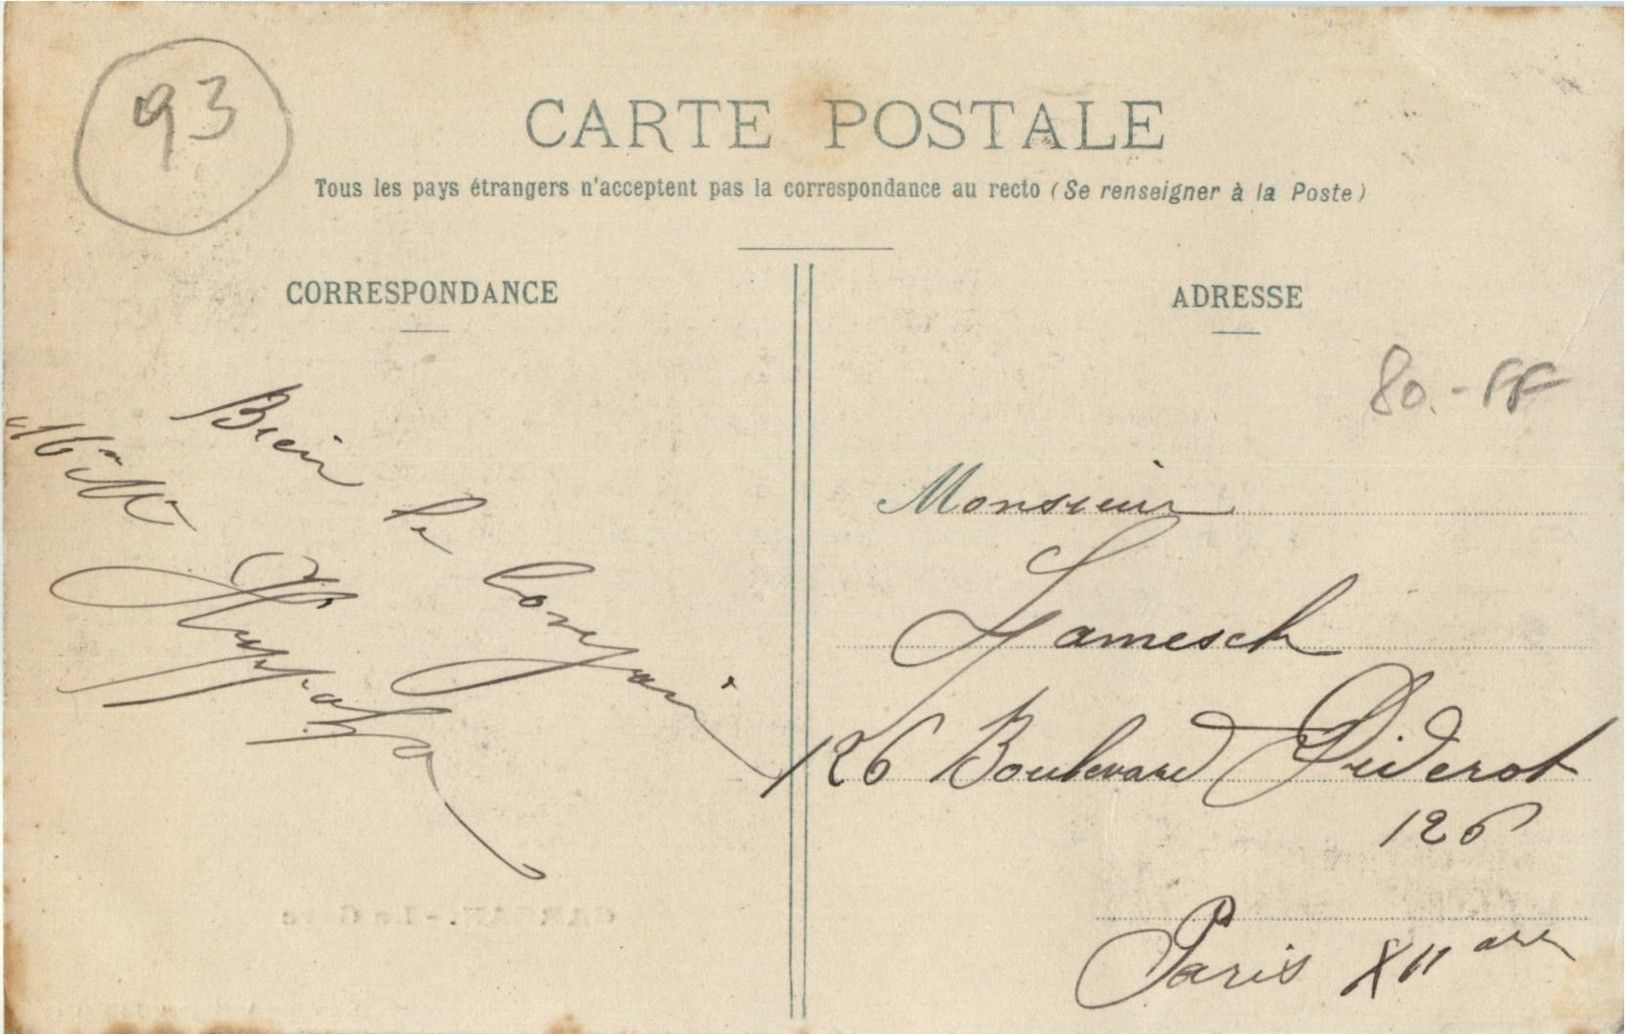 93
CARTE POSTALE
Tous les pays étrangers n'acceptent pas la correspondance au recto (Se renseigner à la Poste)
CORRESPONDANCE
ADRESSE
80.-FF
Bien le
Monsieur
Lamesch
126 Boulevard Diderot
126
Paris XII arr